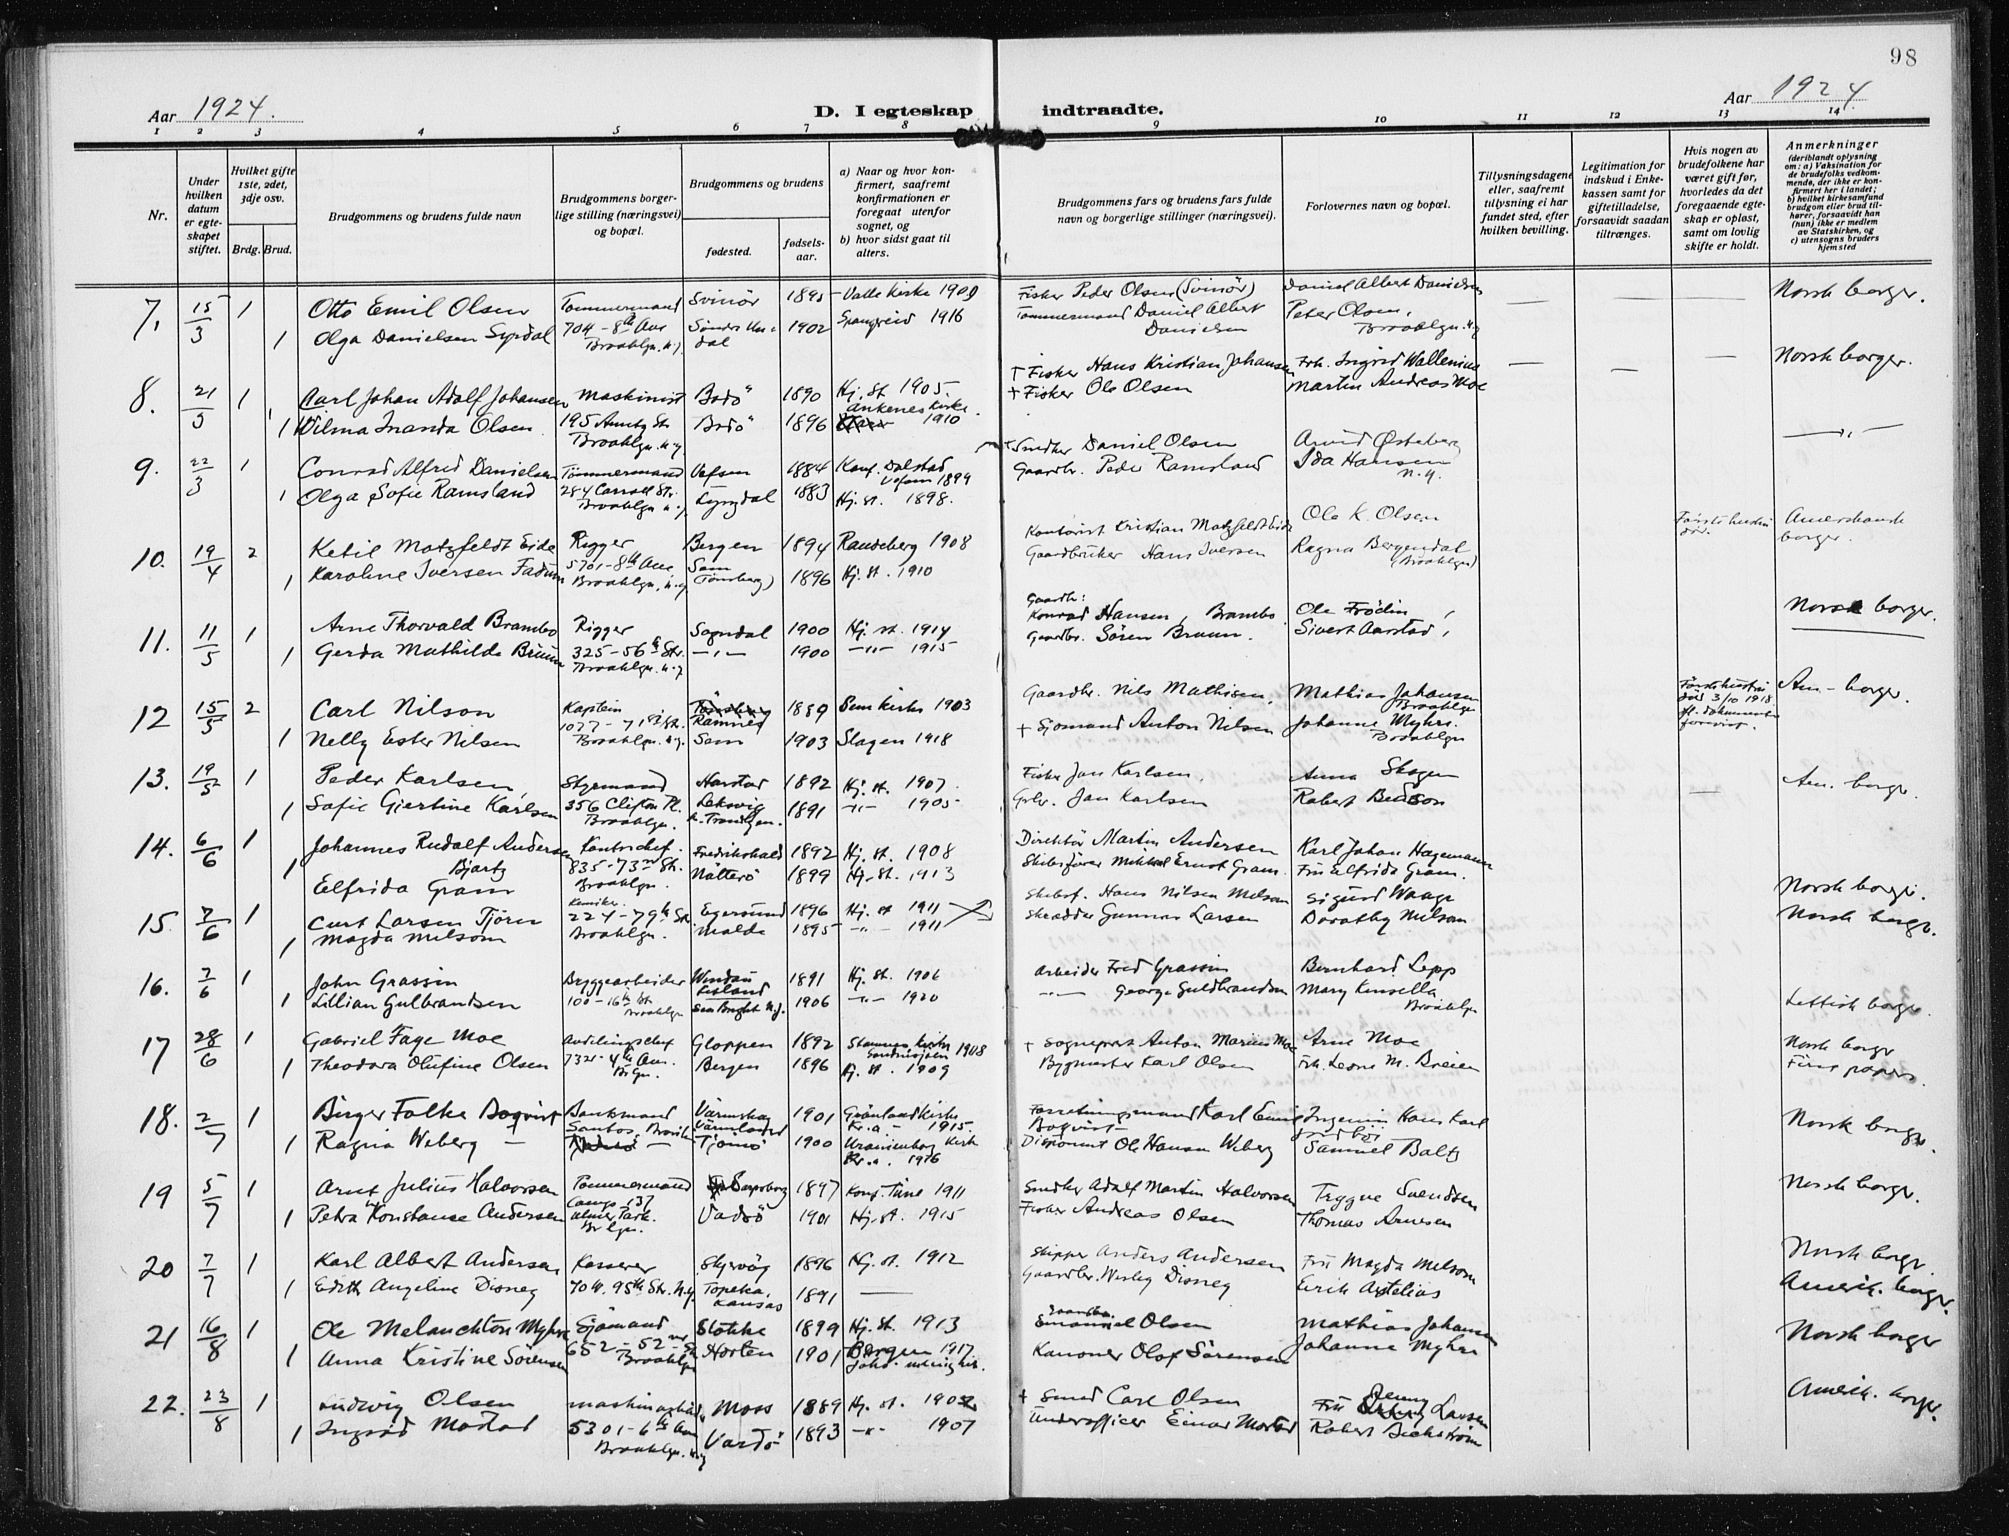 98
Aar 1924.
D. I egteskap indtraadte.
Aar 1924
1 2 3 4 5 6 7 8 9 10 11 12 13 14
Nr.
Under hvilken datum er egteskapet stiftet.
Hvilket gifte 1ste, 2det, 3dje osv.
Brdg. Brud.
Brudgommens og brudens fulde navn
Brudgommens borgerlige stilling (næringsvei) og bopæl.
Brudgommens og brudens
fødested.
fødselsaar.
a) Naar og hvor konfirmert, saafremt konfirmationen er foregaat utenfor sognet, og
b) hvor sidst gaat til alters.
Brudgommens fars og brudens fars fulde navn og borgerlige stillinger (næringsvei).
Forlovernes navn og bopæl.
Tillysningsdagene eller, saafremt tillysning ei har fundet sted, efter hvilken bevilling.
Legitimation for indskud i Enkekassen samt for giftetilladelse, forsaavidt saadan tiltrænges.
Hvis nogen av brudefolkene har været gift før, hvorledes da det foregaaende egteskap er opløst, samt om lovlig skifte er holdt.
Anmerkninger
(deriblandt oplysning om: a) Vaksination for de brudefolks vedkommende, der ikke er konfirmert her i landet; b) hvilket kirkesamfund brudgom eller brud tilhører, forsaavidt han (hun) ikke er medlem av Statskirken, og c) utensogns bruders hjemsted
7. 15/3 1 Otto Emil Olsen Tømmermand Svinör 1895 Valle Kirke 1909 Fisker Peder Olsen (Svinör) Daniel Albert Danielsen — — — Norsk borger.
1 Olga Danielsen Syrdal 704-8th Ave Brooklyn N.Y. 1902 Spangreid 1916 Tømmermand Daniel Albert Danielsen Peter Olsen, Brooklyn N.Y
8. 21/3 1 Carl Johan Adolf Johansen Maskinist Bodö 1890 Hj. st 1905 + Fisker Hans Kristian Johansen Frk. Ingrid Wallenius — — — Norsk borger.
1 Wilma Inanda Olsen 195 St Brooklyn N.Y Bodö 1896 Ankenes Kirke 1910 + Fisker Ole Olsen Martin Andreas Moe
9. 22/3 1 Conrad Alfred Danielsen Tömmermand Vefsen 1884 Konf. Dolstad Vefsen 1899 + Smed Daniel Olsen Arvid Østeberg —"—
1 Olga Sofie Ramsland 284 Carroll Str. Brooklyn N.Y Lyngdal 1883 Hj. st. 1898. Gaardbr. Peder Ramsland Ida Hansen N.Y.
10. 19/4 2 Ketil Motzfeldt Eide Rigger Bergen 1894 Randeberg 1908 Kontorist Kristian Motzfeldt Eide Ole K. Olsen Første hustru dör. Amerikansk borger.
1 Karoline Iversen Fadum 5701-8th Ave Brooklyn, N.Y Sem (Tönsberg) 1896 Hj. st. 1910 Gaardbruker Hans Iversen Ragna Bergendal (Brooklyn)
11. 11/5 1 Arne Thorvald Brambo Rigger Sogndal 1900 Hj. st. 1914 Gaardb: Hansen, Brambo Ole Frödin Norsk borger.
1 Gerda Mathilde Bruun 325-56th Str. Brooklyn N.Y —"— 1900 —"— 1915 Gaardbr. Sören Bruun. Sivert Aarstad
12 15/5 2 Carl Nilson Kaptein Ramnes 1889 Sem Kirke 1903 Gaardbr. Nils Mathisen, Mathias Johansen Brooklyn Første hustru död 3/10 1918 Am- borger.
1 Nelly Ester Nilsen 1077-71st St. Brooklyn N.Y. Sem 1903 Slagen 1918 + Sjömand Anton Nilsen Johanne Myhre. Brooklyn
13. 19/5 1 Peder Karlsen Styrmand Harstad 1892 Hj. st. 1907. Fisker Jan Karlsen. Anna Skogen — Am. borger.
1 Sofie Giertine Karlsen 356 Clifton Pl. Brooklyn. Leksvig 1891 —"— 1905 Grbr. Jan Karlsen Robert
14. 6/6 1 Johannes Rudolf Andersen Bjartz Kontorchef. Fredrikshald 1892 Hj. st. 1908 Direktör Martin Andersen Karl Johan Hagemann
1 Elfrida Gram 835-73rd St. Brooklyn. Nötterö 1899 Hj. st. 1913 Skibsförer Mikkel Ernst Gram. Fru Elfrida Gram. Norsk borger.
15. 7/6 1 Curt Larsen Tjörn Kemiker Egersund 1896 Hj. st 1911 Skibsf. Hans Nilsen Melsom Sigurd Waage Norsk borger.
1 Magda Melsom 224-79th Str. Brooklyn. Molde 1895 —"— 1911 Skrædder Gunnar Larsen Dorothy Melsom
16. 7/6 1 John Grassin Bryggearbeider Windau 1891 Hj. st. 1906 Arbeider Fred Grassin Bernhard Lepp
1 Lillian Gulbrandsen 100-16th St Brooklyn 1906 —"— 1920 —"— George Guldbrandsen Mary Kinsella Brooklyn Lettisk borger.
17 28/6 1 Gabriel Faye Moe Avdelingschef Gloppen 1892 Stamnes Kirke Sandnessjöen 1908 + Sogneprest Anton Marius Moe Arne Moe Norsk borger
1 Theodora Olufine Olsen 7321-4th Ave. Br.lyn. Bergen 1896 Hj. st. 1909 Bygmester Karl Olsen Frk. Leone M. Breien First papers.
18. 2/7 1 Birger Folke Boqvist Bankmand Santos, Brasilien Värmskog Värmland 1901 Grönland Kirke Kr.a — 1915. Forretningsmand Karl Emil Boqvist Ingeniør Hans Karl Norsk borger.
1 Ragna Weberg — Tjömö 1900 Uranienborg Kirke Kr.a. 1916 Disponent Ole Hansen Weberg Samuel Baltz
19 5/7 1 Arnt Julius Halvorsen Tømmermand Sarpsborg 1897 Konf. Tune 1911 Snedker Adolf Martin Halvorsen Trygve Svendsen Norsk borger.
1 Petra Konstanse Andersen Ulmer Park. Brlyn. Vadsö 1901 Hj. st. 1915 Fisker Andreas Olsen Thomas Arnesen
20 7/7 1 Karl Albert Andersen Kasserer Skjervöy 1896 Hj. st. 1912 Skipper Anders Andersen Fru Magda Melsom Norsk borger
1 Edith Angeline Disney 704. 95th Str. N.Y. Topeka, Kansas 1891 — Gaardbr. Wesley Disney Eirik Amerik. borger.
21 16/8 1 Ole Melanchton Myhre Sjömand Stokke 1899 Hj. st. 1913 Gaardbr. Olsen Mathias Johansen Norsk borger
1 Anna Kristine Sörensen 652-52nd St Brooklyn Horten 1901 Bergen 1917 Kanoner Olof Sörensen Johanne Myhre
22. 23/8 1 Ludwig Olsen Moss 1889 Hj. st. 1902 + Smed Carl Olsen Fru Jenny Larsen Amerik. borger.
1 Ingrid Mostad 5301-6th Ave Brooklyn. N.Y Vardö 1893 —"— 1907 Underofficer Einar Mostad Robert Beckström